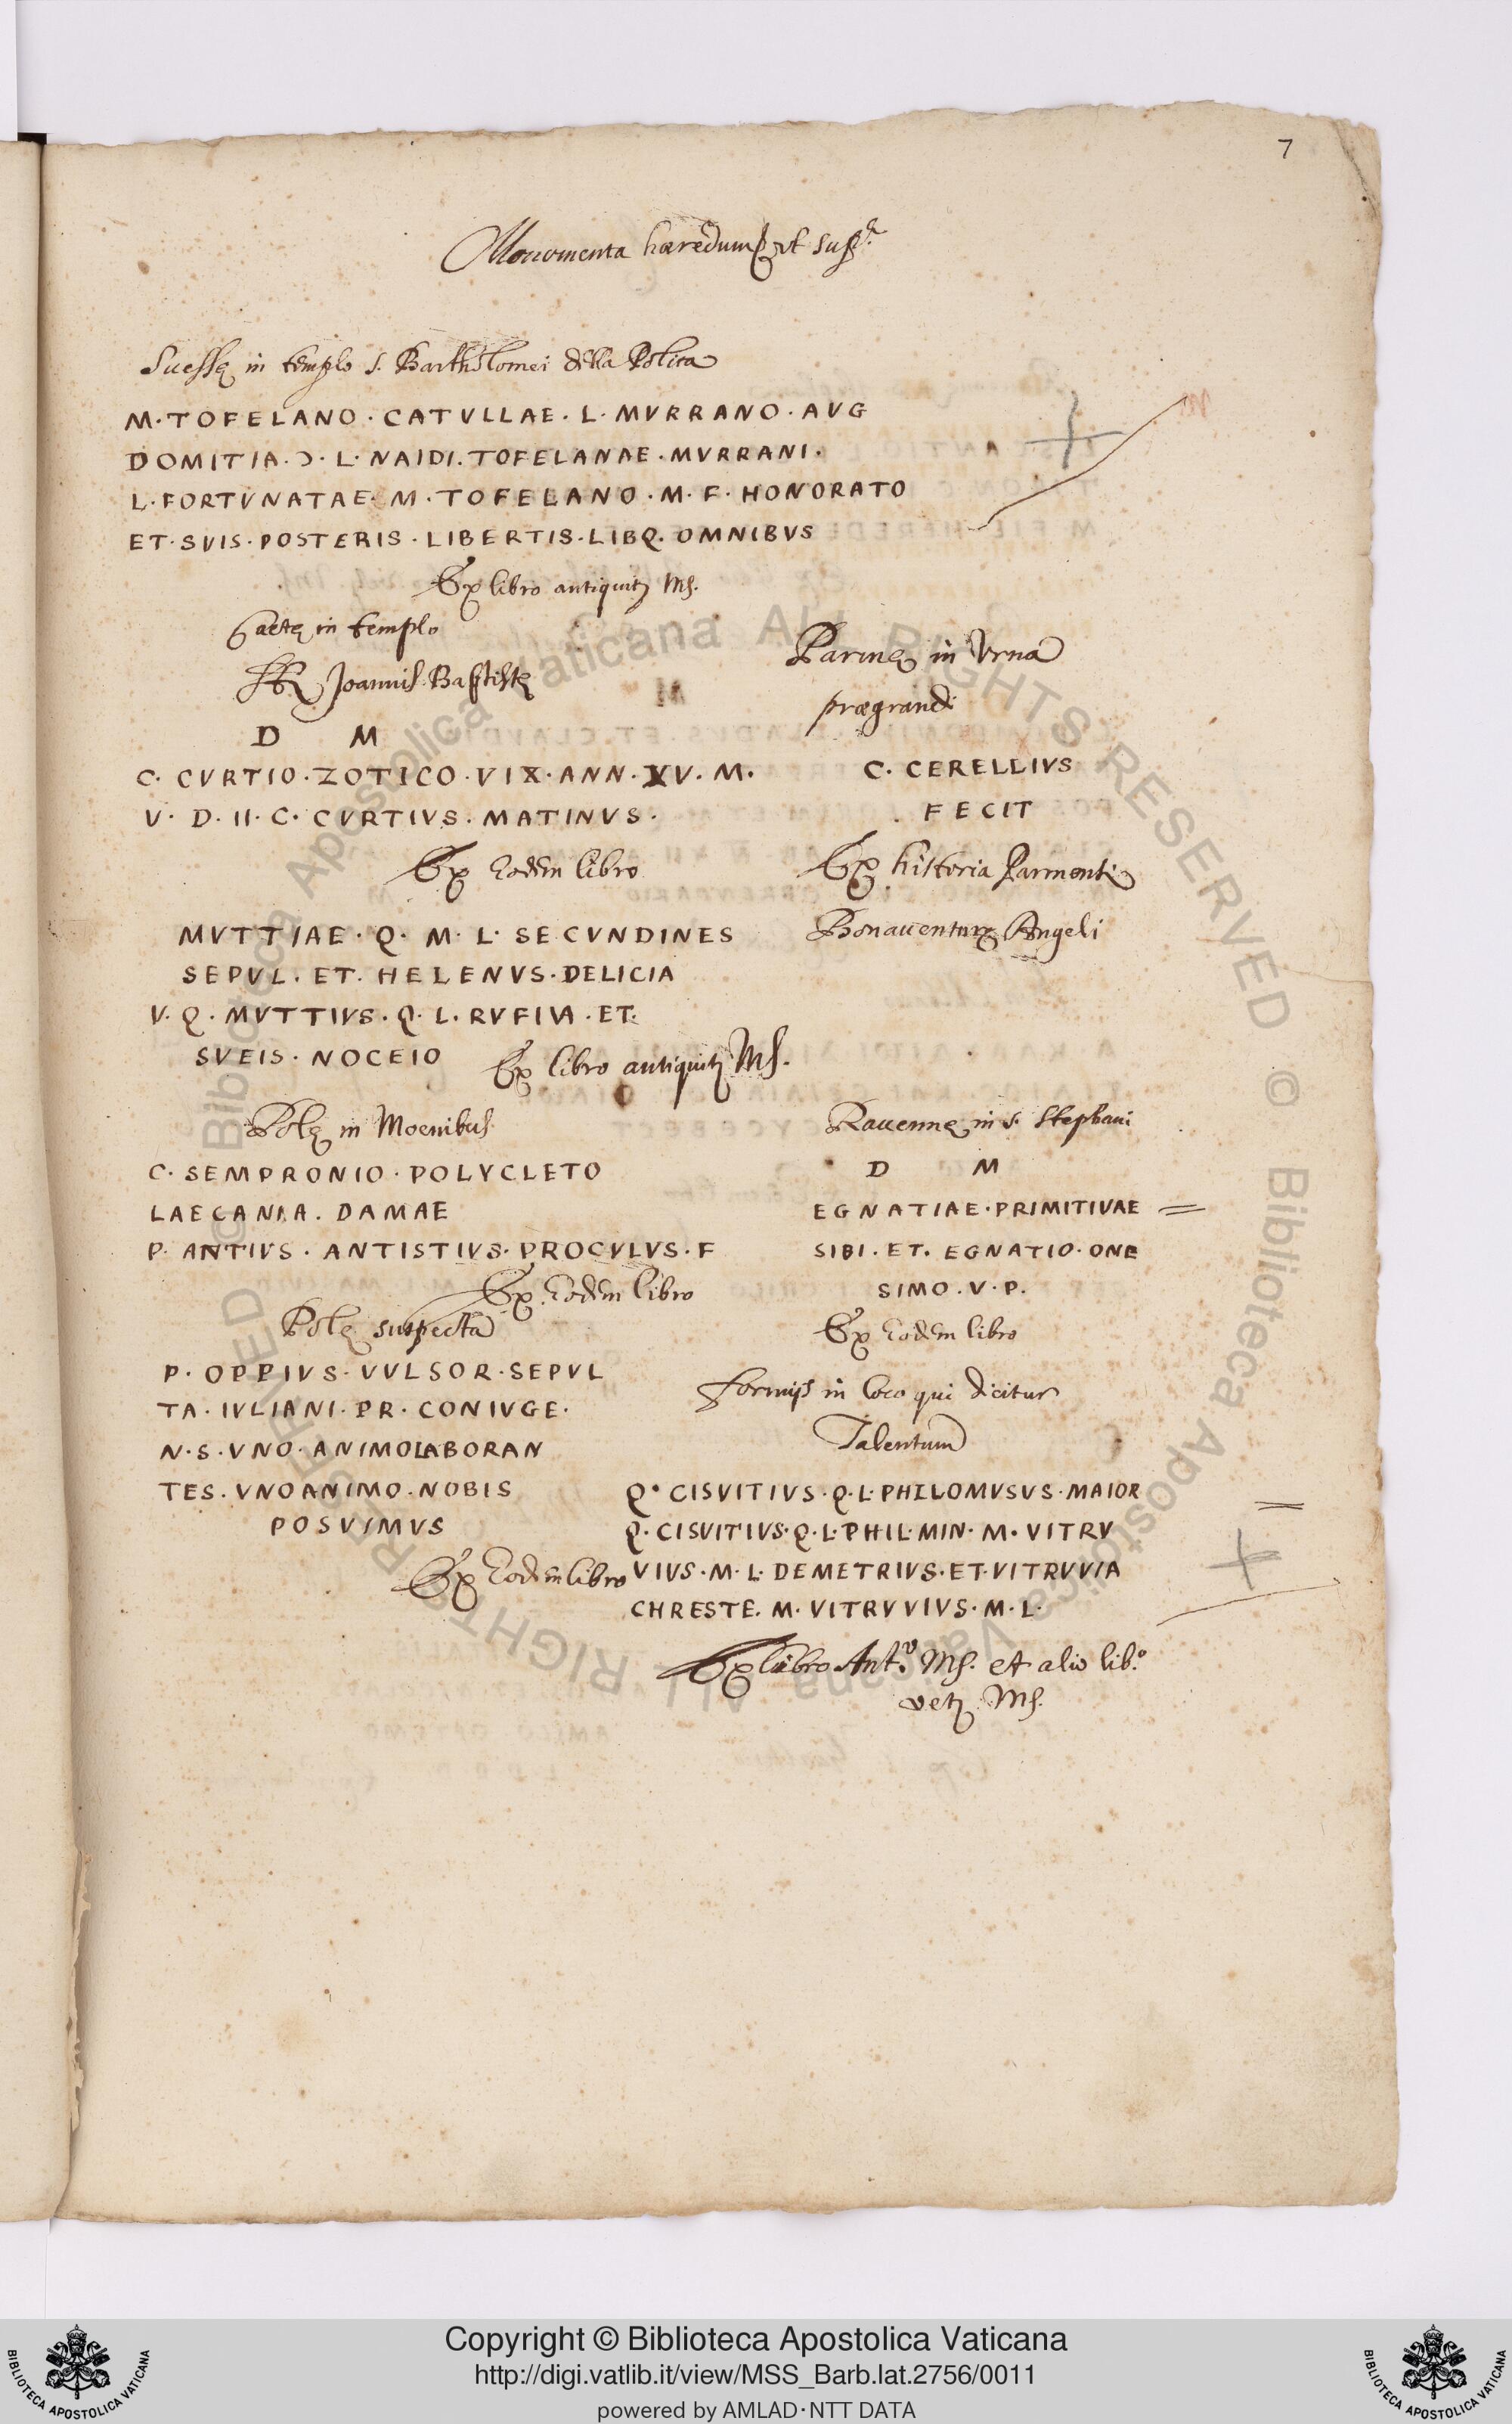 7
Monomenta hæredum ut sup.ª
Suessę in templo s. Bartholomei della Polica
M·TOFELANO·CATVLLAE·L·MVRRANO·AVG
DOMITIA·Ɔ·L·NAIDI·TOFELANAE·MVRRANI·
L·FORTVNATAE·M·TOFELANO·M·F·HONORATO
ET·SVIS·POSTERIS·LIBERTIS·LIBQ·OMNIBVS
Ex libro antiquit Ms.
Caetę in templo
Joannis Baptistę
D M
C·CVRTIO·ZOTICO·VIX·ANN·XV·M·
V·D·II·C·CVRTIVS·MATINVS·
Ex eodem libro
Parmę in Vrna
prægrandi
C·CERELLIVS
FECIT
Ex historia Parmensi
Bonauenturę Angeli
MVTTIAE·Q·M·L·SECVNDINES
SEPVL·ET·HELENVS·DELICIA
V·Q·MVTTIVS·Q·L·RVFIVI·ET·
SVEIS·NOCEIO
Ex libro antiquit Ms.
Polę in Moenibus
C·SEMPRONIO·POLYCLETO
LAECANIA·DAMAE
P·ANTIVS·ANTISTIVS·PROCVLVS·F
Ex eodem libro
Rauennę in s. Stephani
D M
EGNATIAE·PRIMITIVAE
SIBI·ET·EGNATIO·ONE
SIMO·V·P.
Ex eodem libro
Polę suspecta
P·OPPIVS·VVLSOR·SEPVL
TA·IVLIANI·PR·CONIVGE·
N·S·VNO·ANIMOLABORAN
TES·VNOANIMO·NOBIS
POSVIMVS
Ex eodem libro
Formijs in loco qui dicitur
Talentum
Q·CISVITIVS·Q·L·PHILOMVSVS·MAIOR
Q·CISVITIVS·Q·L·PHIL·MIN·M·VITRV
VIVS·M·L·DEMETRIVS·ET·VITRVVIA
CHRESTE·M·VITRVVIVS·M·L·
Ex libro Ant.º Ms. et alio lib.º
vet Ms.
© Biblioteca Apostolica Vaticana ALL RIGHTS RESERVED © Biblioteca Apostolica Vaticana ALL RIGHTS RESERVED
Copyright © Biblioteca Apostolica Vaticana
http://digi.vatlib.it/view/MSS_Barb.lat.2756/0011
powered by AMLAD·NTT DATA
BIBLIOTECA APOSTOLICA VATICANA
BIBLIOTECA APOSTOLICA VATICANA